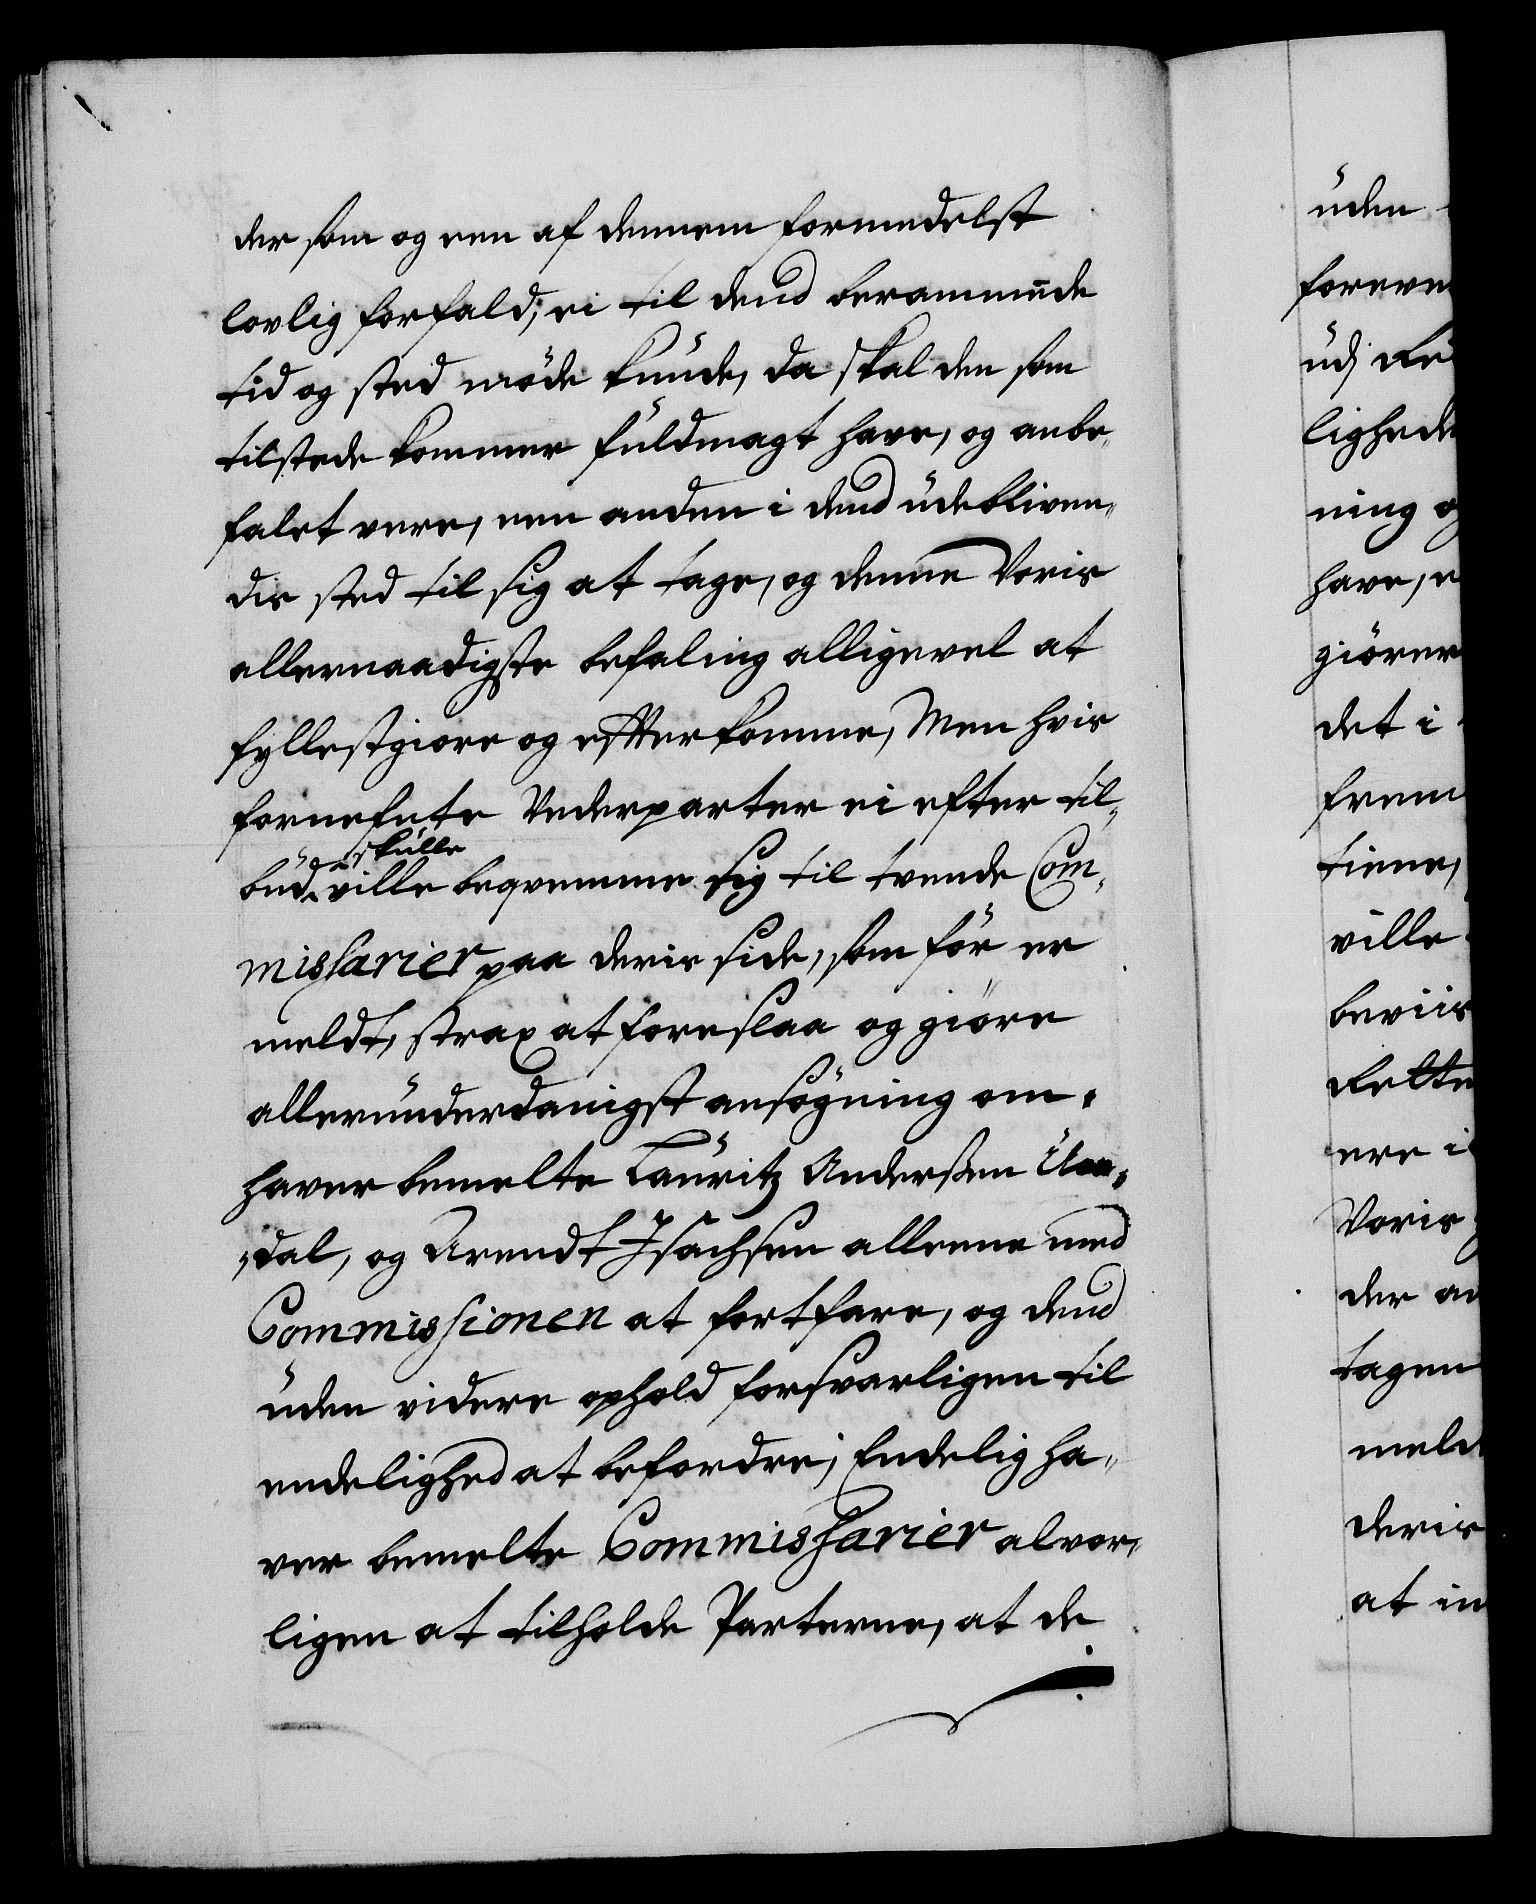 der som og een af dennem formedelst
lovlig forfald, ei til dend berammede
tid og sted møde kunde, da skal den som
tilstede kommer fuldmagt have, og anbe,
falet vere, een anden i dend udebliven,
dis sted til sig at tage, og denne Voris
allernaadigste befaling alligevel at
fyllestgiøre og effterkomme, Men hvis
fornefnte Vederparter ei efter til,
skulle
bud ville beqvemme sig til tvende Com,
missarier paa deris side, som før er
meldt, strax at foreslaa og giøre
allerunderdanigst ansøgning om,
haver bemelte Lauritz Anderßen
dal, og Arendt Isachsen alleene med
Commissionen at fortfare, og dend
uden videre ophold forsvarligen til
endelighed at befordre; Endelig ha,
ver bemelte Commissarier alvor,
ligen at tilholde Parterne, at de
uden
foreve
udj
lighede
ning og
have, e
giører
det i
frem
tiene,
ville
beviis
Rette
ere i
Voris
der an
tagen
meld
deris
at in